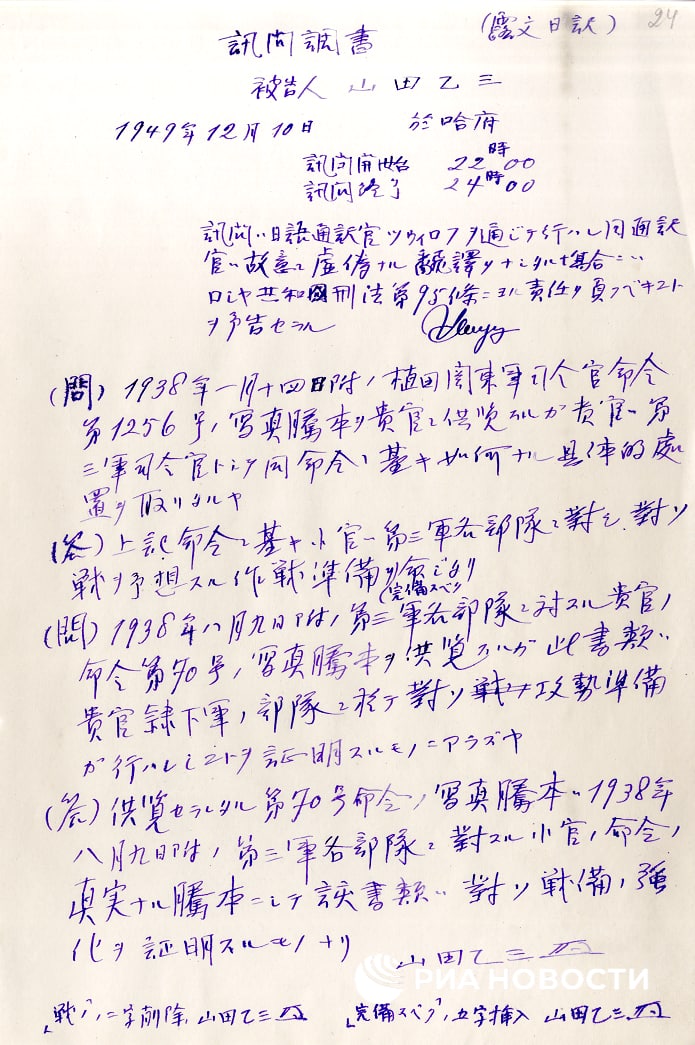 (露文日訳) 24
訊問調書
被告人 山田乙三
1949年12月10日 於哈府
訊問開始 22時00
訊問終了 24時00
訊問ハ日語通訳官ツウィロフヲ通ジテ行ハレ同通訳
官ハ故意ニ虚偽ナル飜譯ヲナシタル場合ニハ
ロシヤ共和國刑法第95條ニヨル責任ヲ負フベキコト
ヲ予告セラル
(問) 1938年一月十四日附ノ植田関東軍司令官命令
第1256号ノ写真騰本ヲ貴官ニ供覧スルガ貴官ハ第
三軍司令官トシテ同命令ニ基キ如何ナル具体的処
置ヲ取リタルヤ
(答) 上記命令ニ基キ小官ハ第三軍各部隊ニ對シ對ソ
戦ヲ予想スル作戦準備ヲ命ジタリ
(完備スベク
(問) 1938年八月九日附ノ第三軍各部隊ニ対スル貴官ノ
命令第70号ノ写真騰本ヲ供覧スルガ此書類ハ
貴官隷下軍ノ部隊ニ於テ對ソ攻勢準備
ガ行ハレシコトヲ証明スルモノニアラズヤ
(答) 供覧セラレタル第70号命令ノ写真騰本ハ1938年
八月九日附ノ第三軍各部隊ニ對スル小官ノ命令ノ
真実ナル騰本ニシテ該書類ハ對ソ戦備ノ強
化ヲ証明スルモノナリ
山田乙三
РИА НОВОСТИ
「戦ノ」ノ二字削除 山田乙三 「完備スベク」ノ五字挿入 山田乙三